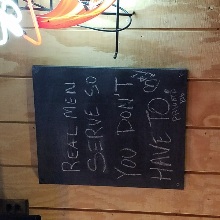 REAL MEN
SERVE SO
YOU DON'T
HAVE TO